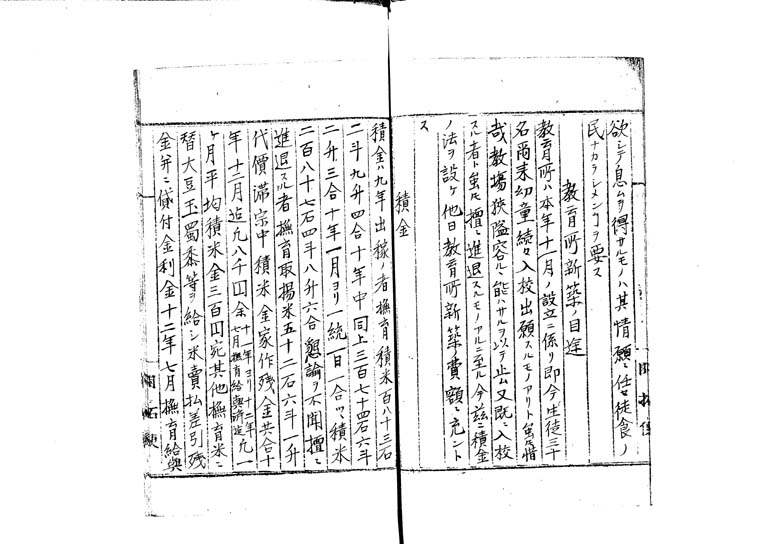 欲シテ息ムヲ得サルモノハ其情願ニ任セ徒食ノ
民ナカラシメンヿヲ要ス
教育所新築ノ目途
教育所ハ本年十一月ノ設立ニ係リ即今生徒三十
名爾来幼童続々入校出願スルモノアリト雖𪜈惜
哉教場狭隘容ルニ能ハサルヲ以テ止ム又既ニ入校
スル者ト雖𪜈擅ニ進退スルモノアルニ至ル今茲ニ積金
ノ法ヲ設ケ他日教育所新築ノ費額ニ充ント
ス
積金
積金ハ九年出稼ノ者撫育積米百八十三石
二斗九升四合十年中同上三百七十四石六斗
二升三合十年一月ヨリ一統一日一合ツヽ積米
二百八十七石四斗八升六合懇諭ヲ不聞擅ニ
進退スル者撫育取揚米五十二石六斗一升
代價滞宗中積米金家作残金共合十
年十二月迄凡八千円余十一年ヨリ十二年七月撫育給與済迄凡一
ヶ月平均積米金三百円宛其他撫育米ニ
替大豆玉蜀黍等ヲ給シ米賣払差引残
金并ニ貸付金利金十二年七月撫育給與